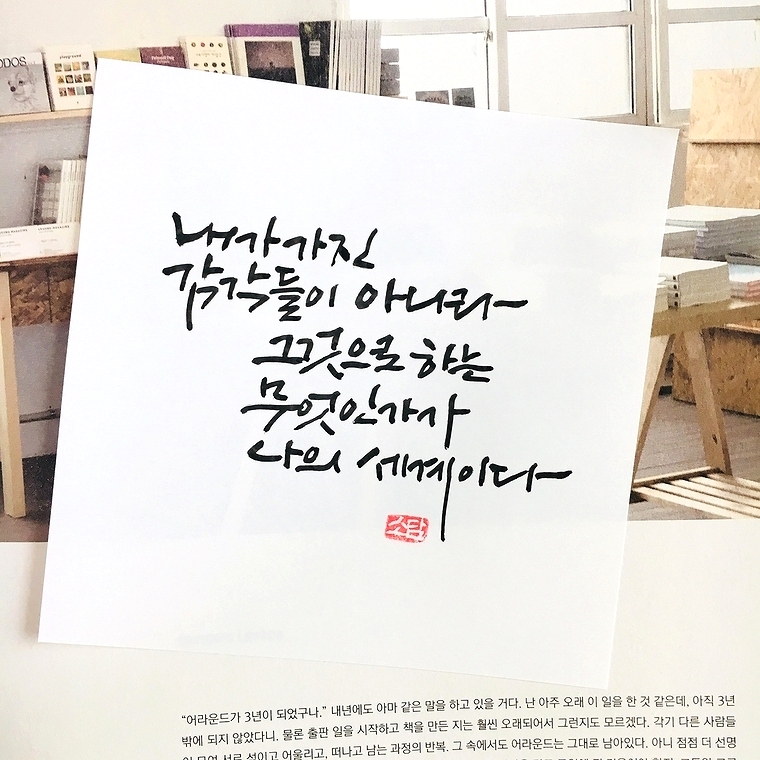 내가 가진
감각들이 아니라
그것으로 하는
무엇인가가
나의 세계이다
소담
“어라운드가 3년이 되었구나.” 내년에도 아마 같은 말을 하고 있을 거다. 난 아주 오래 이 일을 한 것 같은데, 아직 3년
밖에 되지 않았다니. 물론 출판 일을 시작하고 책을 만든 지는 훨씬 오래되어서 그런지도 모르겠다. 각기 다른 사람들
이 모여 서로 섞이고 어울리고, 떠나고 남는 과정의 반복. 그 속에서도 어라운드는 그대로 남아있다. 아니 점점 더 선명